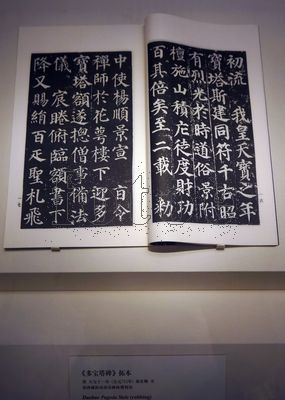 初流　我皇天寶之年
寶塔斯建同符千古昭
有烈光於時道俗景附
檀施山積庀徒度財功
百其倍矣至二載　勑
中使楊順景宣　旨令
禪師於花萼樓下迎多
寶塔額遂總僧事備法
儀　宸睠俯臨額書下
降又賜絹百疋聖札飛
一七
《多宝塔碑》拓本
唐 天宝十一年（公元752年）颜真卿 书
Duobao Pagoda Stele (rubbing)